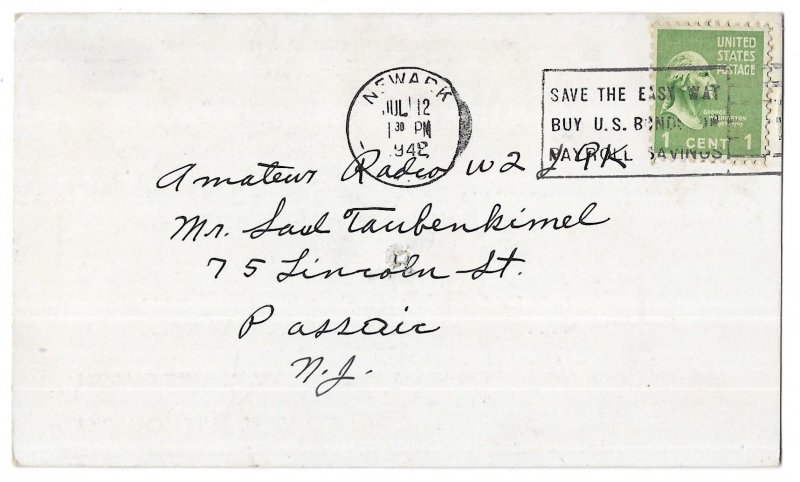 UNITED
STATES
POSTAGE
GEORGE
WASHINGTON
1 CENT 1
NEWARK
JUL 12
1 30 PM
1942
SAVE THE EASY WAY
BUY U.S. BONDS
PAYROLL SAVINGS
Amateur Radio W2
Mr. Saul Taubenkimel
75 Lincoln St.
Passaic
N.J.